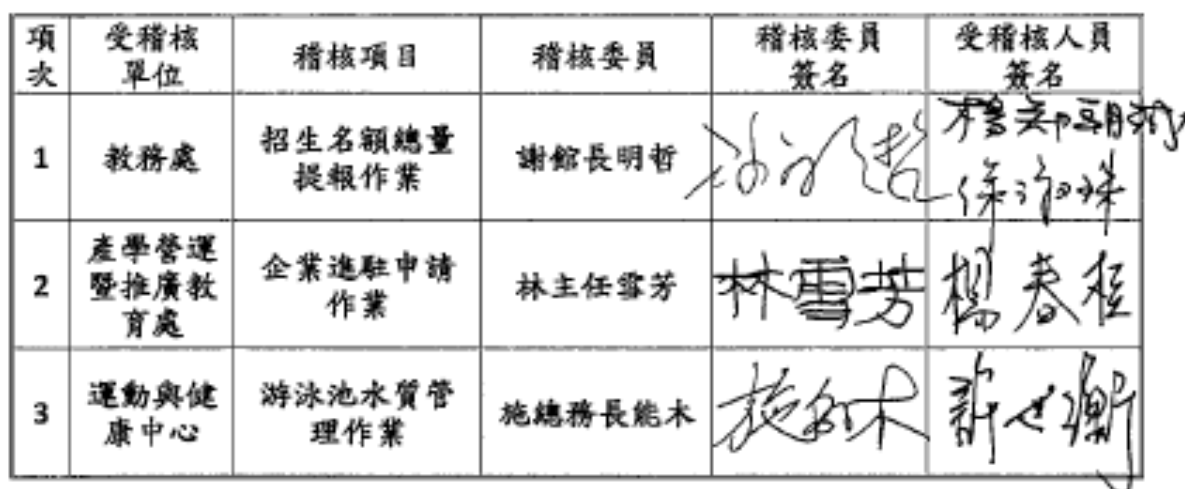 項次 受稽核單位 稽核項目 稽核委員 稽核委員簽名 受稽核人員簽名
1 教務處 招生名額總量提報作業 謝館長明哲
2 產學營運暨推廣教育處 企業進駐申請作業 林主任雪芳 林雪芳 楊春桂
3 運動與健康中心 游泳池水質管理作業 施總務長能木 施能木 許